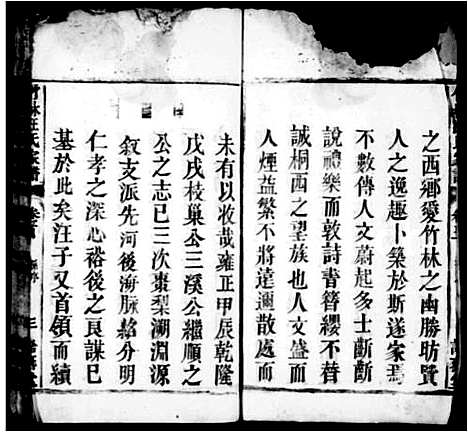 之西鄉愛竹林之幽勝昉賢
人之逸趣卜築於斯遂家焉
不數傳人文蔚起多士斷斷
說禮樂而敦詩書簪纓不替
誠桐西之望族也人文盛而
人煙益繁不將達邇散處而
未有以收哉雍正甲辰乾隆
戊戌枝巢公三溪公繼願之
公之志已三次棗梨溯淵源
敘支派先河後海脉絡分明
仁孝之深心裕後之良謀巳
基於此矣汪子又首領而續
竹林汪氏宗譜
卷首
三